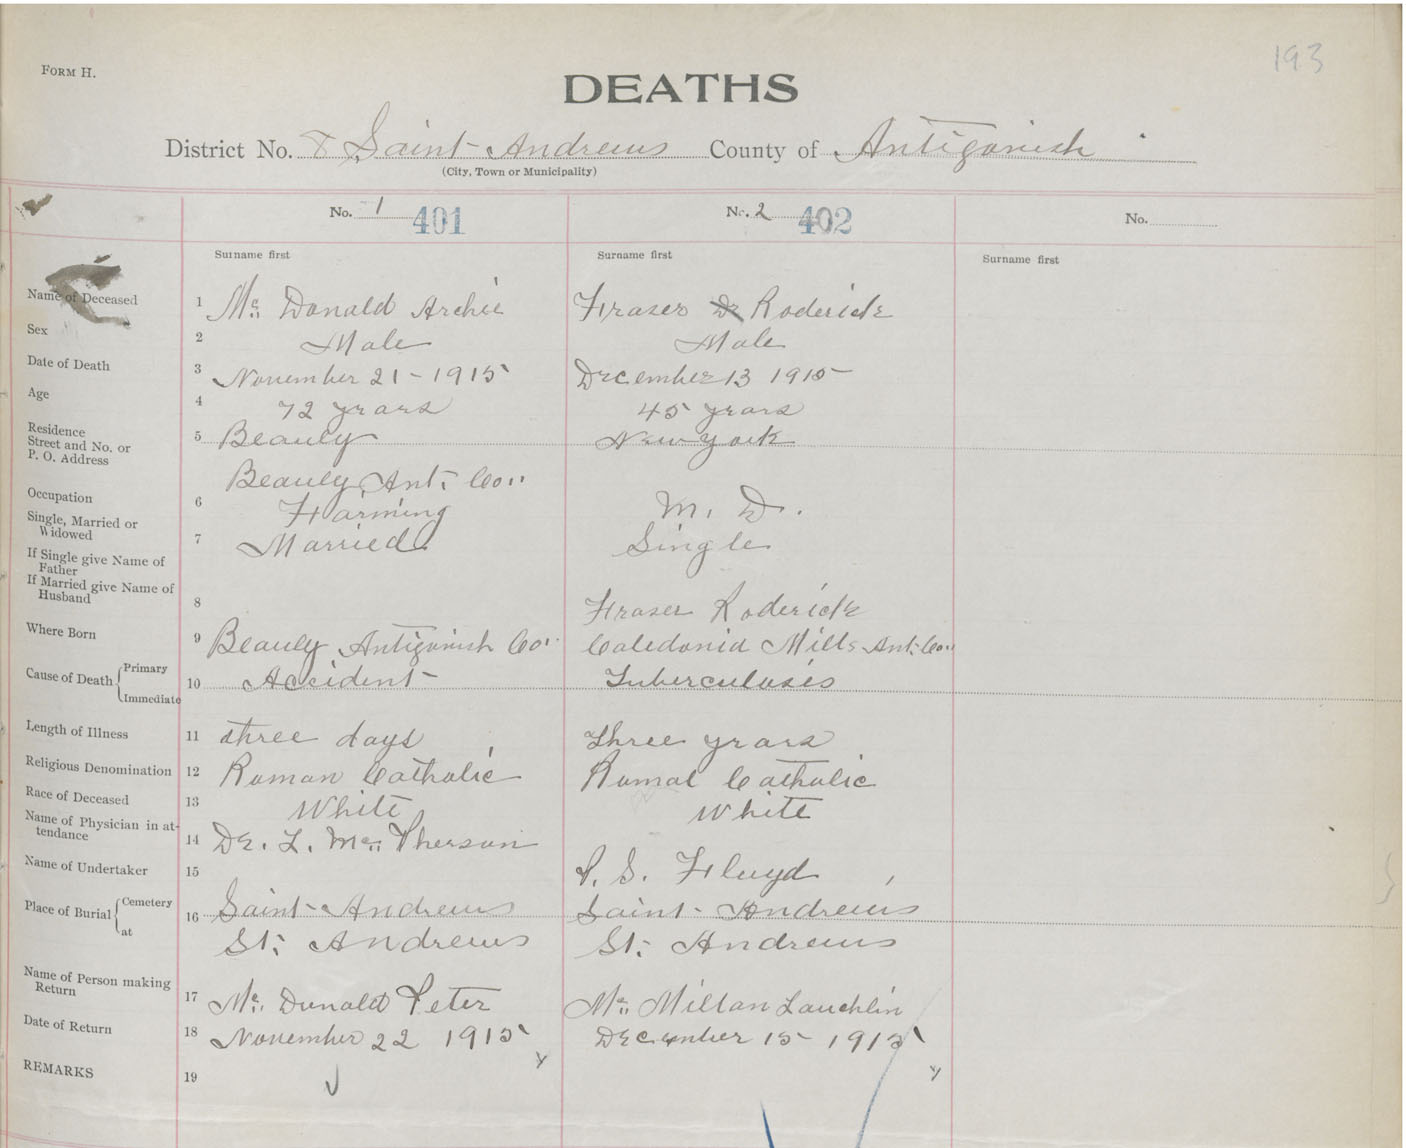 193
FORM H.
DEATHS
District No. 8 Saint-Andrews County of Antigonish
(City, Town or Municipality)
No. 1 401
No. 2 402
No.
Surname first
Surname first
Surname first
Name of Deceased 1 Mc Donald Archie Fraser Dr Roderick
Sex 2 Male Male
Date of Death 3 November 21-1915 December 13 1915
Age 4 72 years 45 years
Residence
Street and No. or
P. O. Address 5 Beauly New york
Beauly Ant. Co.
Occupation 6 Farming M. D.
Single, Married or
Widowed 7 Married Single
If Single give Name of
Father
If Married give Name of
Husband 8 Fraser Roderick
Where Born 9 Beauly Antigonish Co. Caledonia Mills Ant. Co.
Cause of Death { Primary
Immediate 10 Accident Tuberculosis
Length of Illness 11 three days three years
Religious Denomination 12 Roman Catholic Romal Catholic
Race of Deceased 13 White White
Name of Physician in at-
tendance 14 Dr. L. Mc Pherson
Name of Undertaker 15 P. S. Floyd
Place of Burial { Cemetery
at 16 Saint-Andrews Saint-Andrews
St. Andrews St. Andrews
Name of Person making
Return 17 Mc Donald Peter Mc Millan Lauchlin
Date of Return 18 November 22 1915 December 15 1915
REMARKS 19